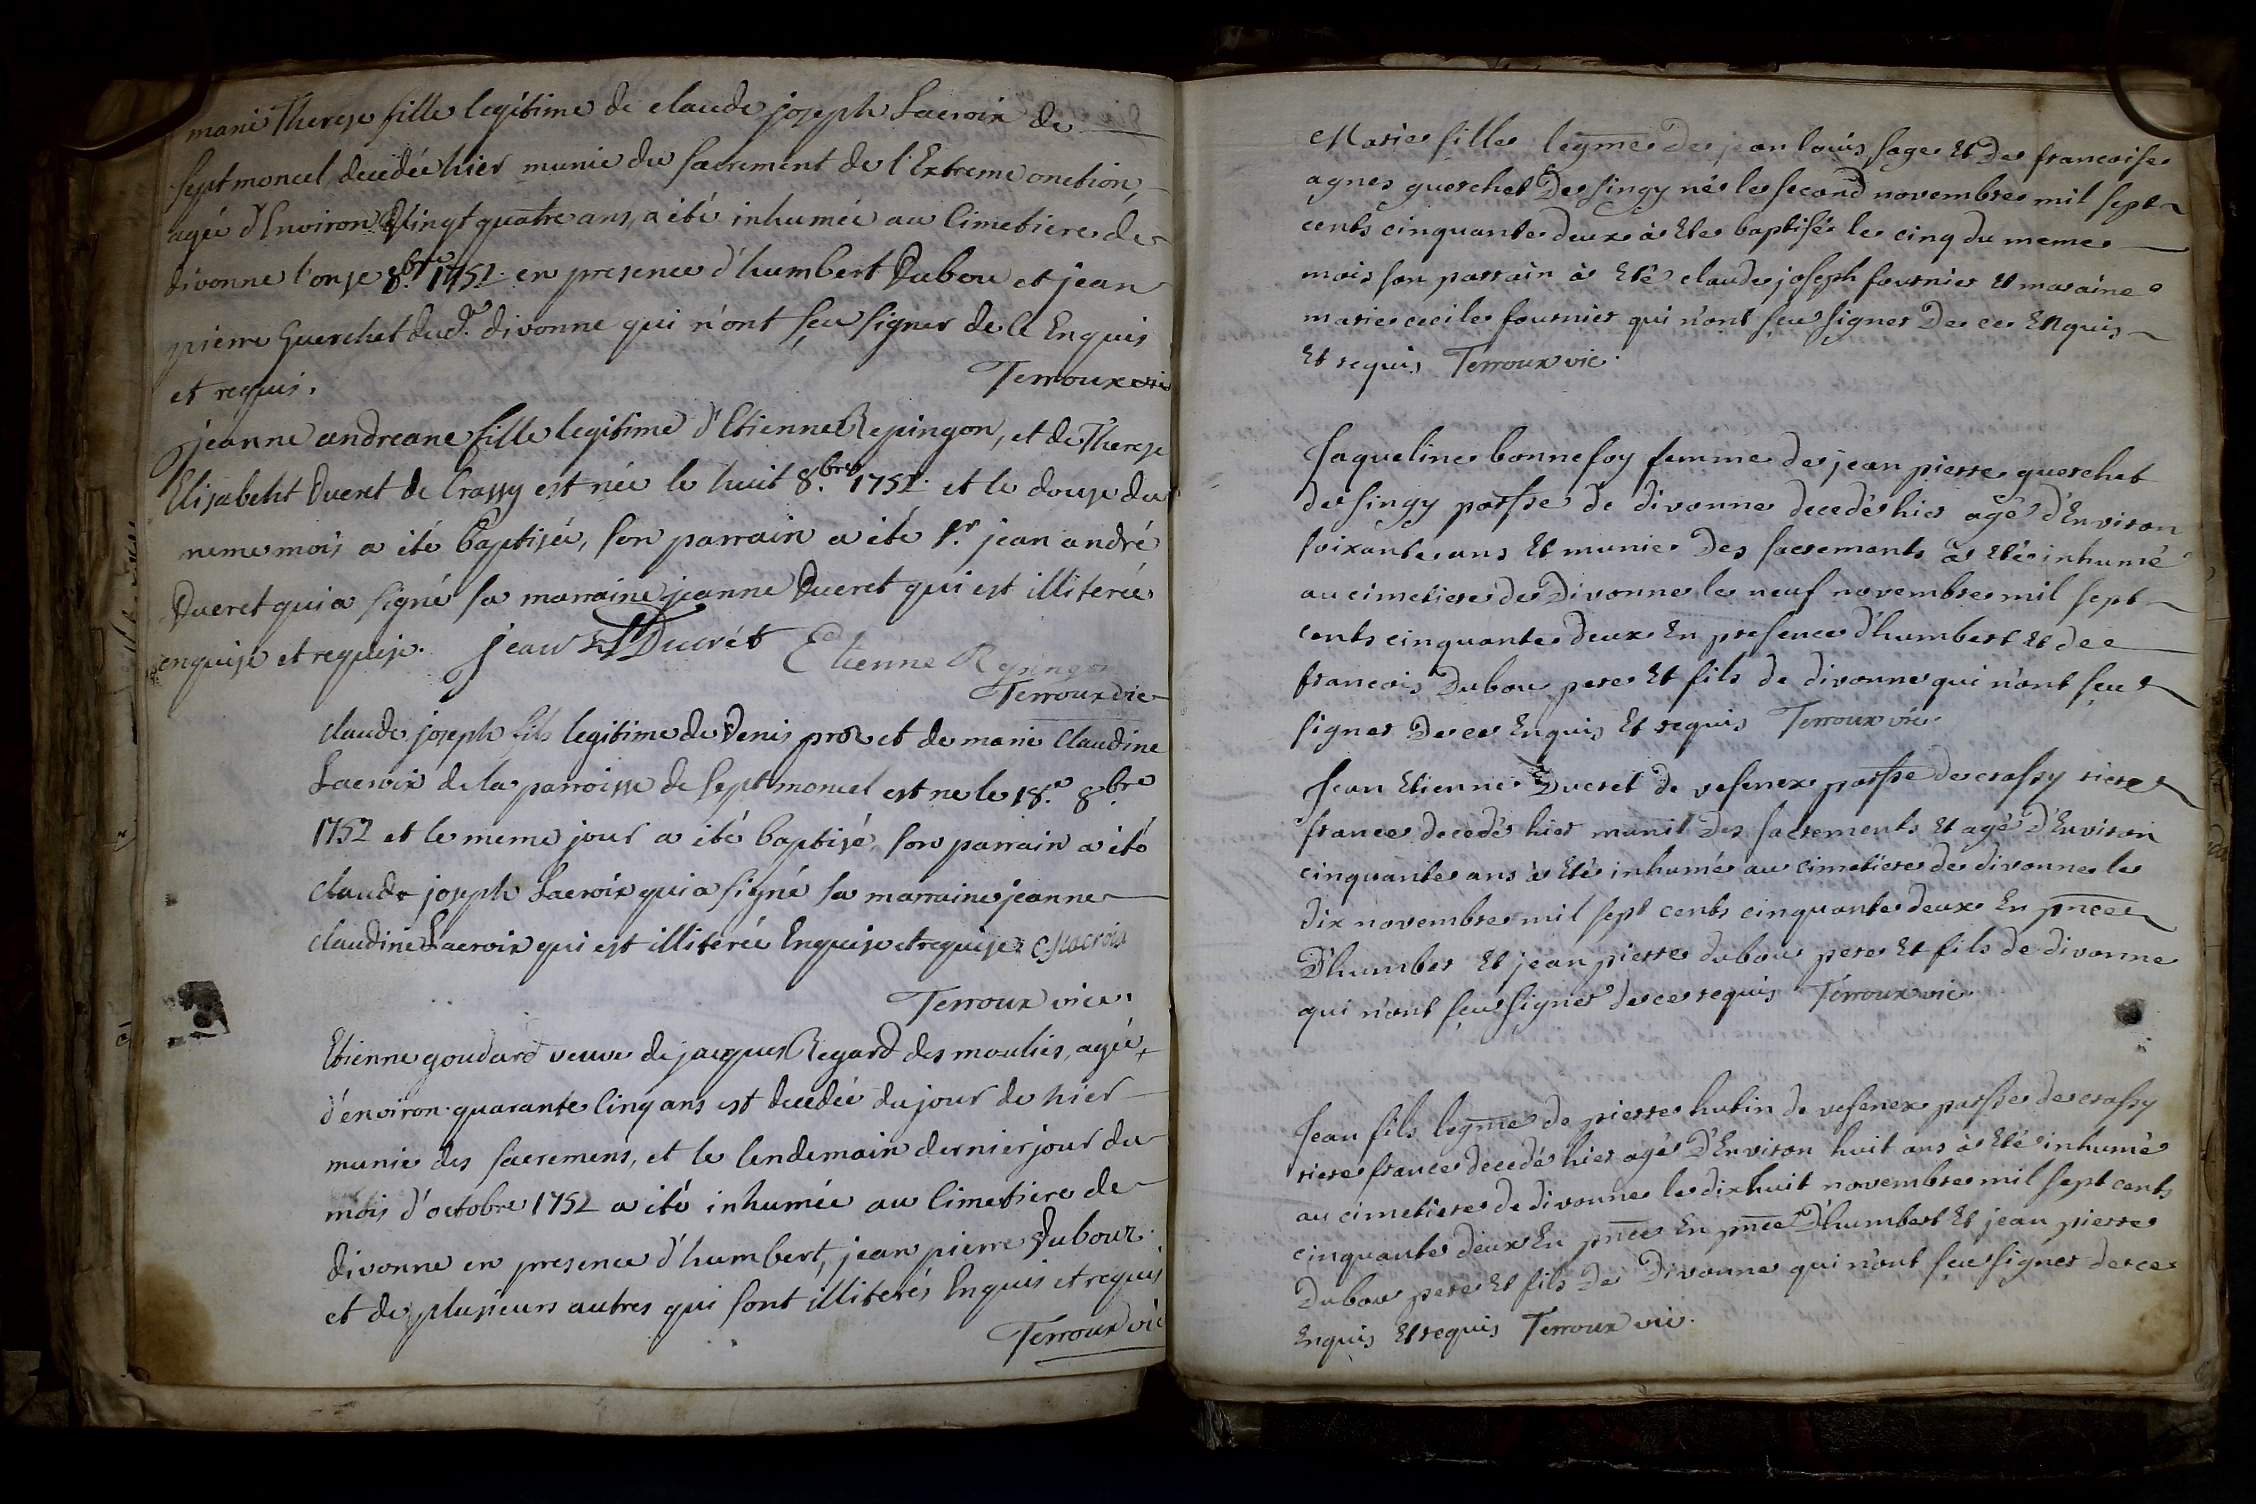 marie Therese fille legitime de claude joseph Lacroix de
septmoncel, decedée hier munie du sacrement de l'Extreme onction,
agée d'Environ Vingt quatre ans, a été inhumée au Cimetiere de
divonne l'onze 8.bre 1752 en presence d'humbert Dubou et jean
pierre Guerchet dud.t divonne qui n'ont sçu signer de ce Enquis
et requis. Terroux vic
jeanne andreane fille legitime d'Etienne Repingon, et de Therese
Elisabeht Dueret de Crassy est née le huit 8.bre 1752 et le douze du
meme mois a été Baptisée, son parrain a été s.r jean andré
Dueret qui a signé sa marraine jeanne Dueret qui est illiterée
enquise et requise. jean Ducrét Etienne Repingon
Terroux vic
claude joseph fils legitime de Denis prost et de marie Claudine
Lacroix de la parroisse de septmoncel est ne le 18.e 8.bre
1752 et le meme jour a été baptisé, son parrain a été
Claude joseph Lacroix qui a signé sa marraine jeanne
claudine Lacroix qui est illiterée Enquise et requise. Lacroix
Terroux vice.
Etienne goudard veuve de jacques Regard des moulies, agée
d'environ quarante Cinq ans est decedée du jour de hier
munie des sacremens, et le lendemain dernier jour du
mois d'octobre 1752 a été inhumée au Cimetiere de
divonne en presence d'humbert, jean pierre Dubour
et de plusieurs autres qui sont illiterés Enquis et requis
Terroux vic
Marie fille legme de jean louis sage Et De francoise
agnes guerchet De singy né le second novembre mil sept
cents cinquante deux à Ete baptisée le cinq du meme
mois son parrain à Eté claude joseph fournier Et maraine
marie cecile fournier qui n'ont sçu signer De ce Enquis
Et requis Terroux vic.
Jaqueline bonnefoy femme de jean pierre guerchet
de singy parsse de divonne decedé hier agé d'Environ
soixante ans Et munie Des sacrements à Eté inhumé
au cimetiere de Divonne le neuf novembre mil sept
cents cinquante deux En presence d'humbert Et de
francois Dubou pere Et fils de divonne qui n'ont sçu
signer De ce Enquis Et requis Terroux vic.
Jean Etienne Dueret de vesenex parsse de crassy riere
france decedé hier munit Des sacrements Et agé D'Environ
cinquante ans à Eté inhumé au cimetiere de divonne le
dix novembre mil sept cents cinquante deux En pnce
D'humber Et jean pierre dubou pere Et fils de divonne
qui n'ont sçu signer de ce requis Terroux vic.
Jean fils legme de pierre hutin de vesenex parsse de crassy
riere france decedé hier agé D'Environ huit ans à Eté inhumé
au cimetiere de divonne le dixhuit novembre mil sept cents
cinquante deux En pnce En pnce D'humbert Et jean pierre
Dubou pere Et fils De Divonne qui n'ont sçu signer de ce
Enquis Et requis Terroux vic.